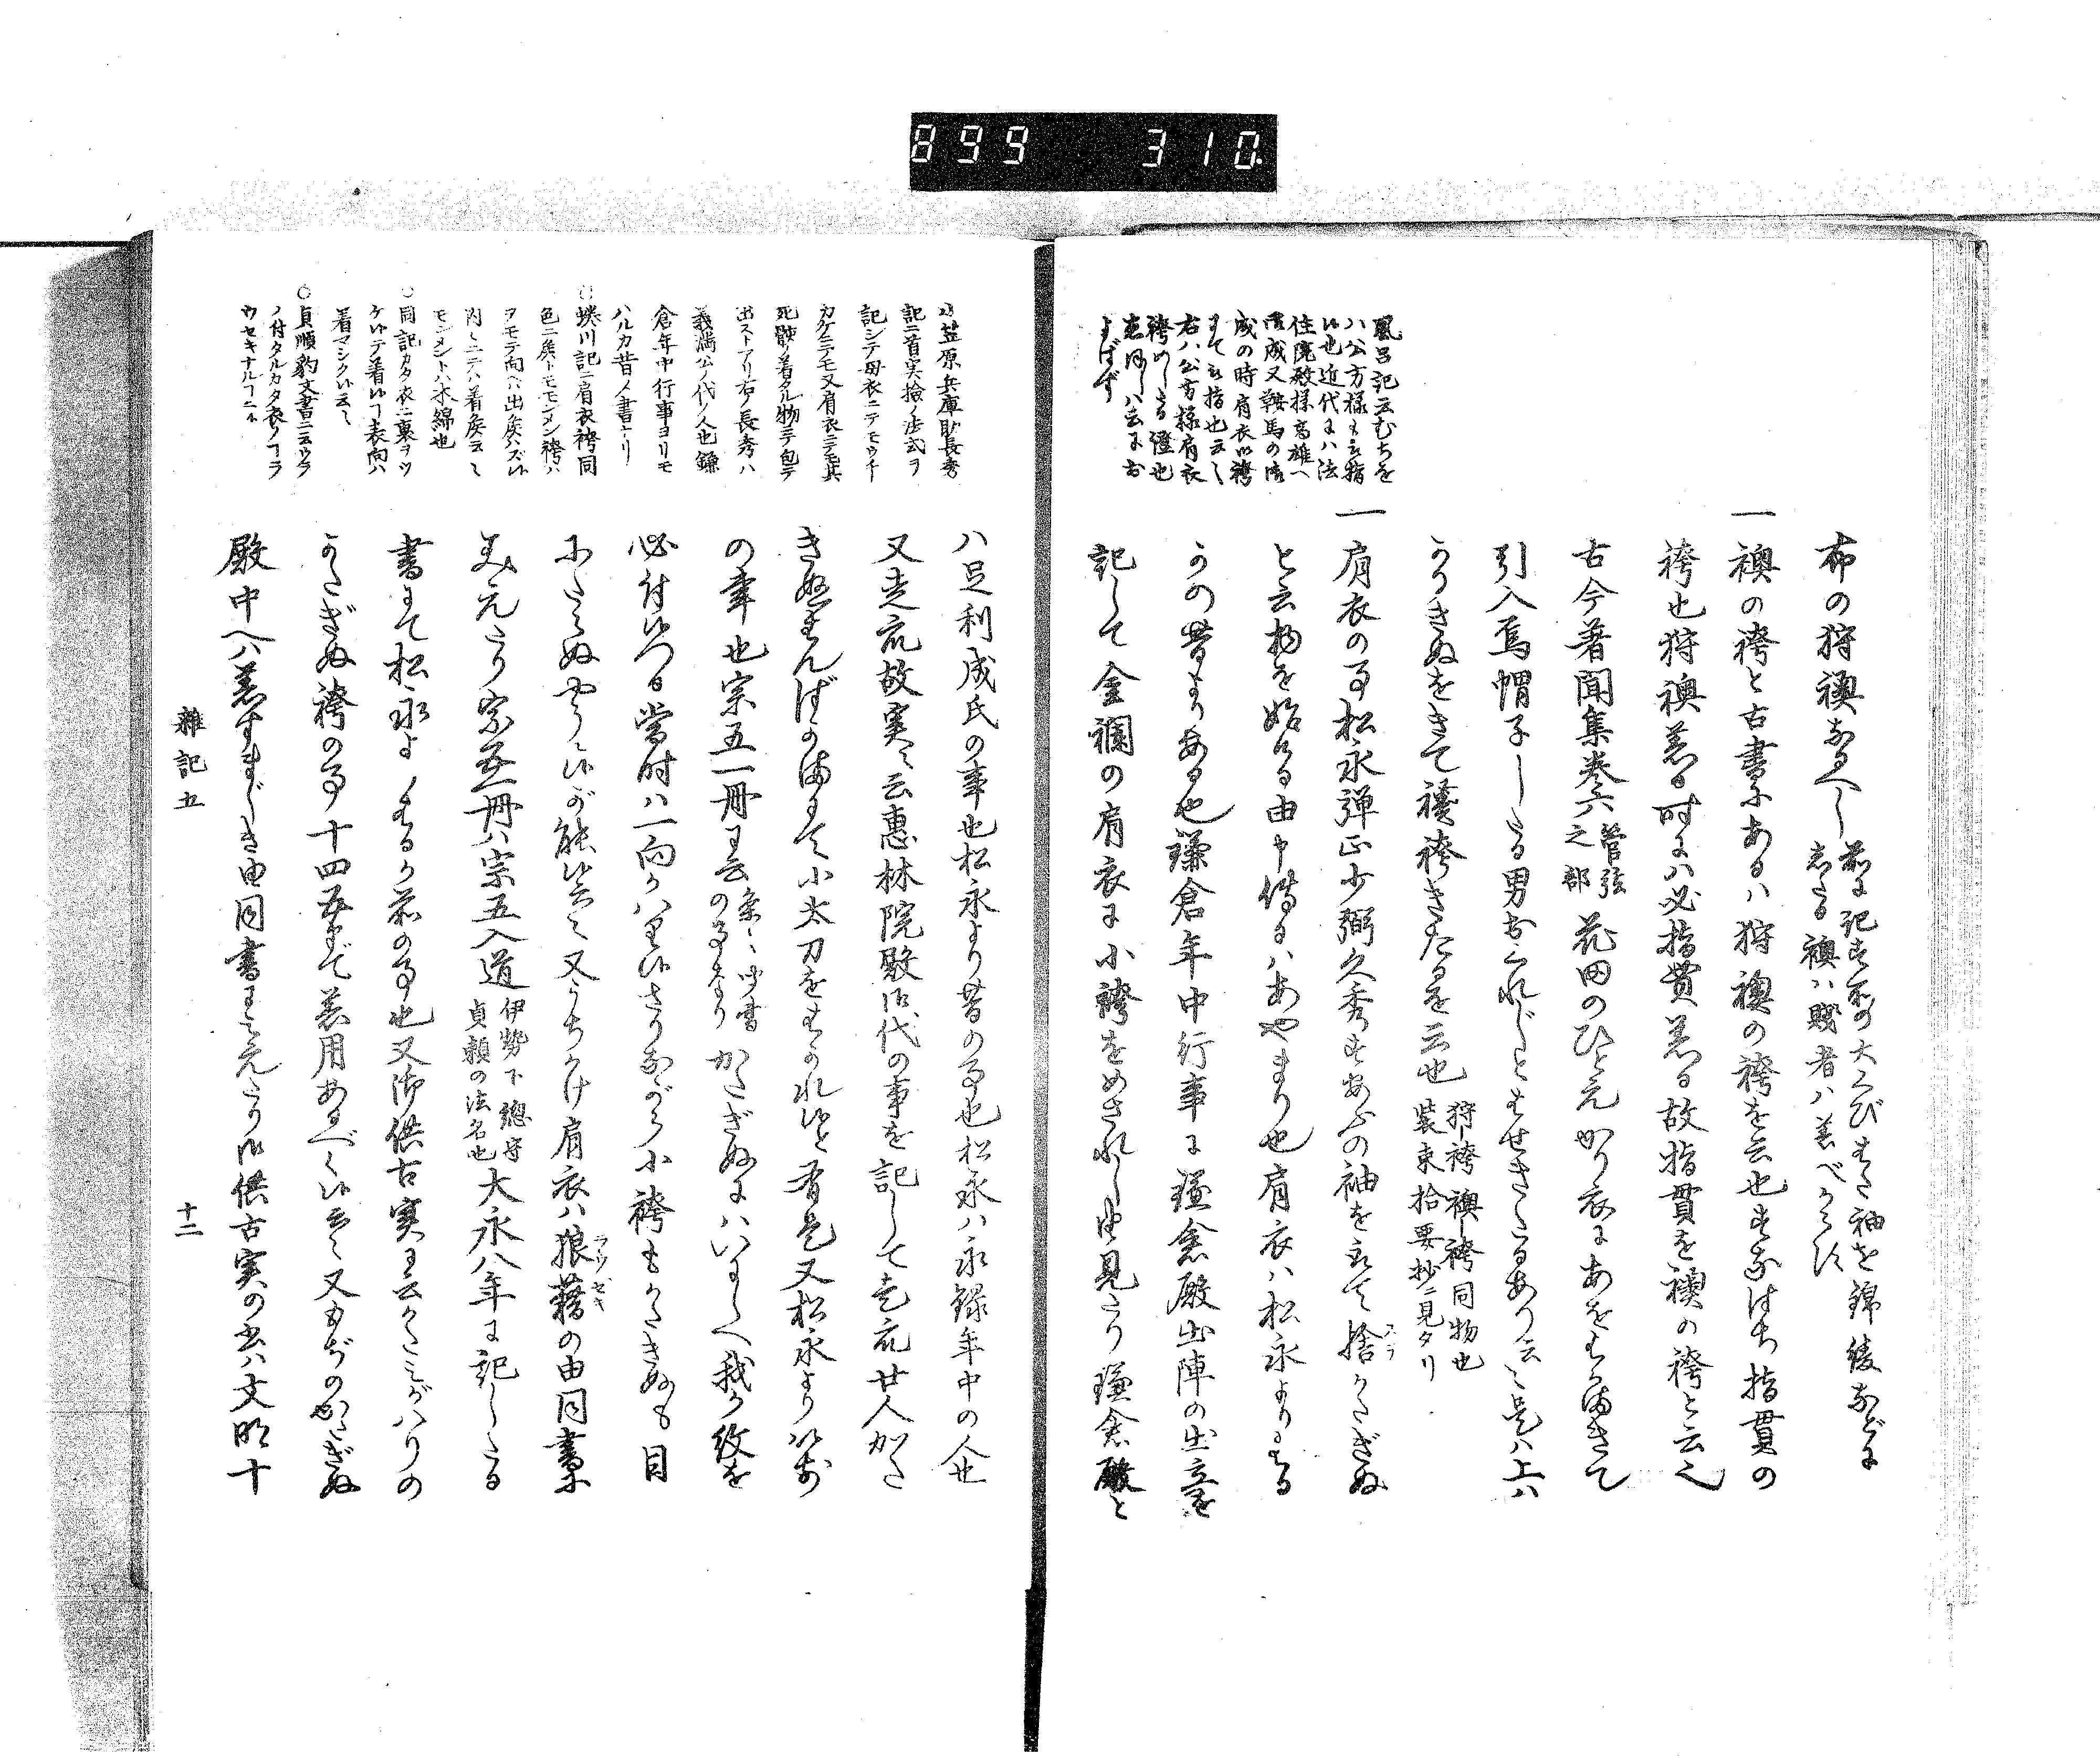 899 310
風呂記云むちを
ハ公方様も云指
は也近代にハ法
住院殿様高雄へ
御成又鞍馬の御
成の時肩衣小袴
にて被指也云々
右ハ公方様肩衣
袴めしたる證也
布の狩襖なるへし
襖ハ賤者ハ着べからず
一襖の袴と古書にあるハ狩襖の袴を云也すなはち指貫の
袴也狩襖着る時にハ必指貫着る故指貫を襖の袴と云也
古今著聞集巻六管弦之部花田のひとえかり衣にあをはかまきて
引入烏帽子したる男おくれじとはせきたるあり云々是ハ上ハ
かりきぬをきて襖袴きたるを云也狩袴襖袴同物也装束拾要抄ニ見タリ
一肩衣の事松永弾正少弼久秀すあふの袖を取て捨かたぎぬ
と云物を始る由申傳るハあやまり也肩衣ハ松永よりはる
かの昔よりある也鎌倉年中行事に鎌倉殿出陣の出立を
記して金襴の肩衣に小袴をめされし由見たり鎌倉殿と
小笠原兵庫助長秀
記ニ首実撿ノ法式ヲ
記シテ母衣ニテモウチ
カケニテモ又肩衣ニテモ其
死骸ノ着タル物ニテ包テ
出ストアリ右ノ長秀ハ
義満公ノ代ノ人也鎌
倉年中行事ヨリモ
ハルカ昔ノ人ノ書ナリ
○蜷川記ニ肩衣袴同
色ニ候トモモンメン袴ハ
ヲモテ向ヘハ出候ハズ
内々ニテハ着候云々
モンメントハ木綿也
○同記カタ衣ニ裏ヲツ
ケ候テ着候コト表向ハ
着マシク候云々
○貞順豹文書ニ云ウラ
ノ付タルカタ衣ノコラ
ウセキナルコトニ候
ハ足利成氏の事也松永より昔の事也松永ハ永録年中の人也
又走衆故実ニ云惠林院殿御代の事を記して走衆廿人かた
きぬはんばかまにて小太刀をはかれ候と有是又松永より以前
の事也宗五一冊に云条々聞書の事なりかたぎぬにハいにしへ我か紋を
必付候つる當時ハ一向かハり候さりながら小袴もかたきぬも目
にたゝぬやうに候が能候云々又うちかけ肩衣ハ狼藉の由同書に
みえたり宗五一冊ハ宗五入道伊勢下總守貞頼の法名也大永八年に記したる
書にて松永よりはるか前の事也又御供古実に云かたミがハりの
かたぎぬ袴の事十四五まで着用あるべく候云々又もぢのかたぎぬ
殿中へハ着すまじき由同書にみえたり御供古実の書ハ文明十
雜記五
十二